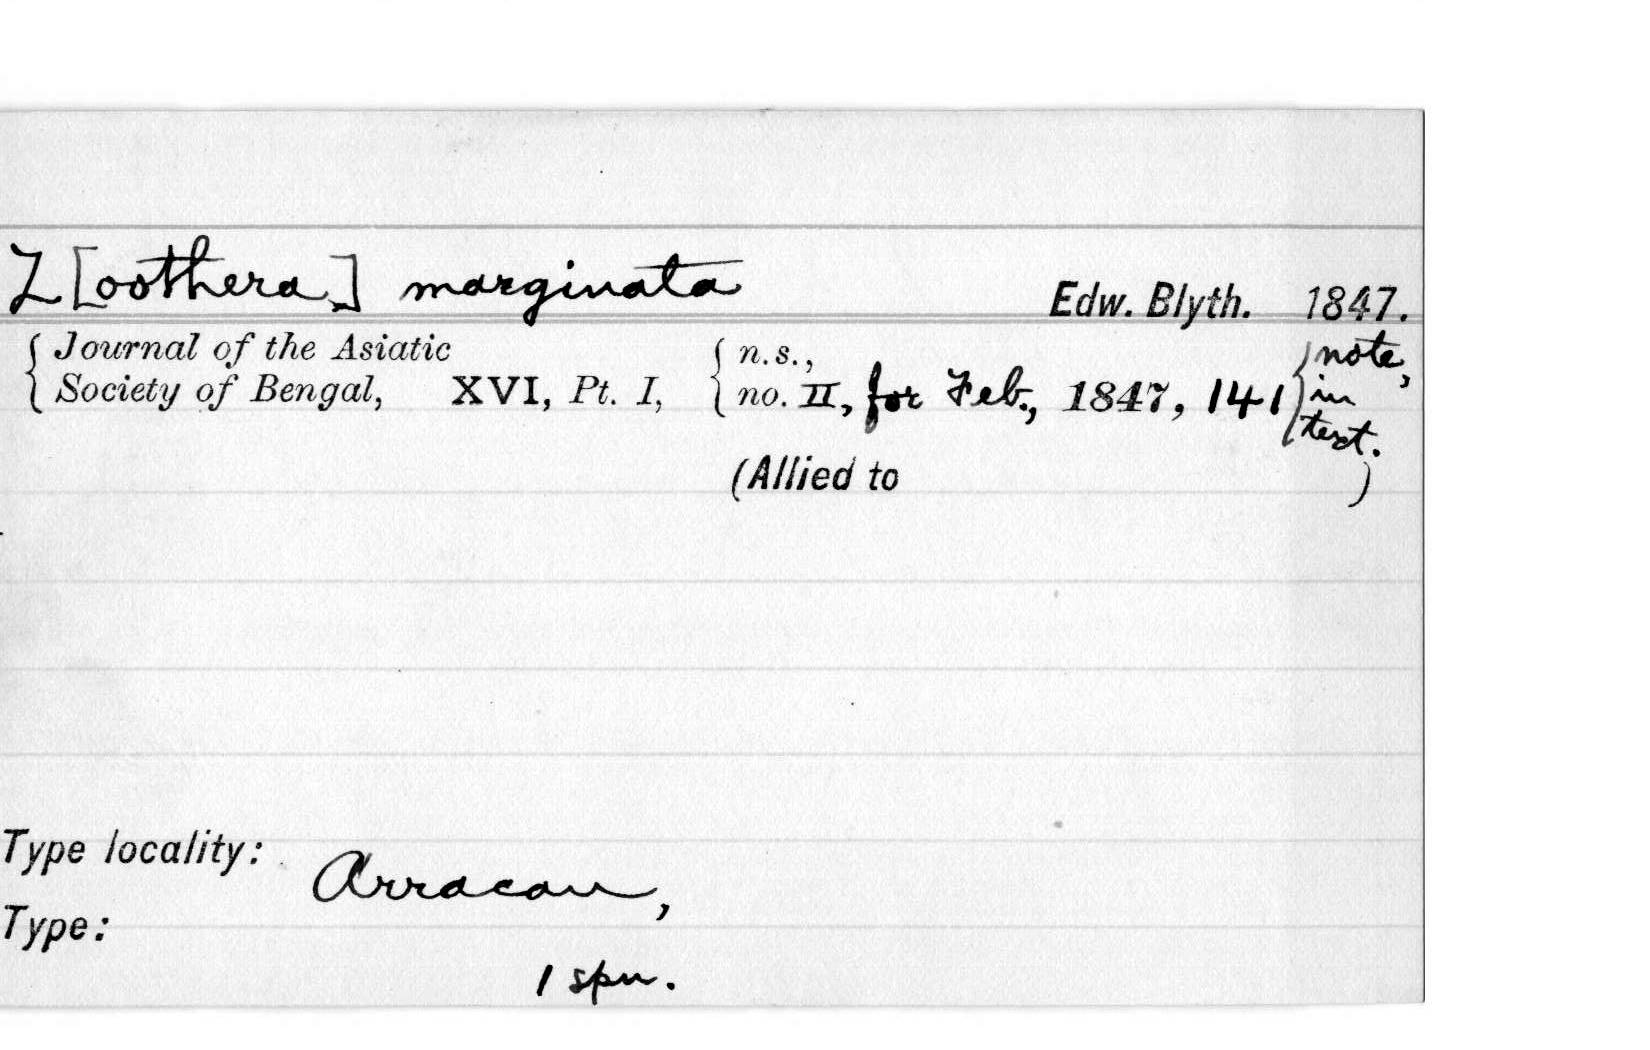 Z[oothera] marginata Edw. Blyth. 1847.
{Journal of the Asiatic {n.s., {note,
Society of Bengal, XVI, Pt. I, no. II, for Feb., 1847, 141 in
text.
(Allied to )
Type locality:
Arracan,
Type:
1 spn.